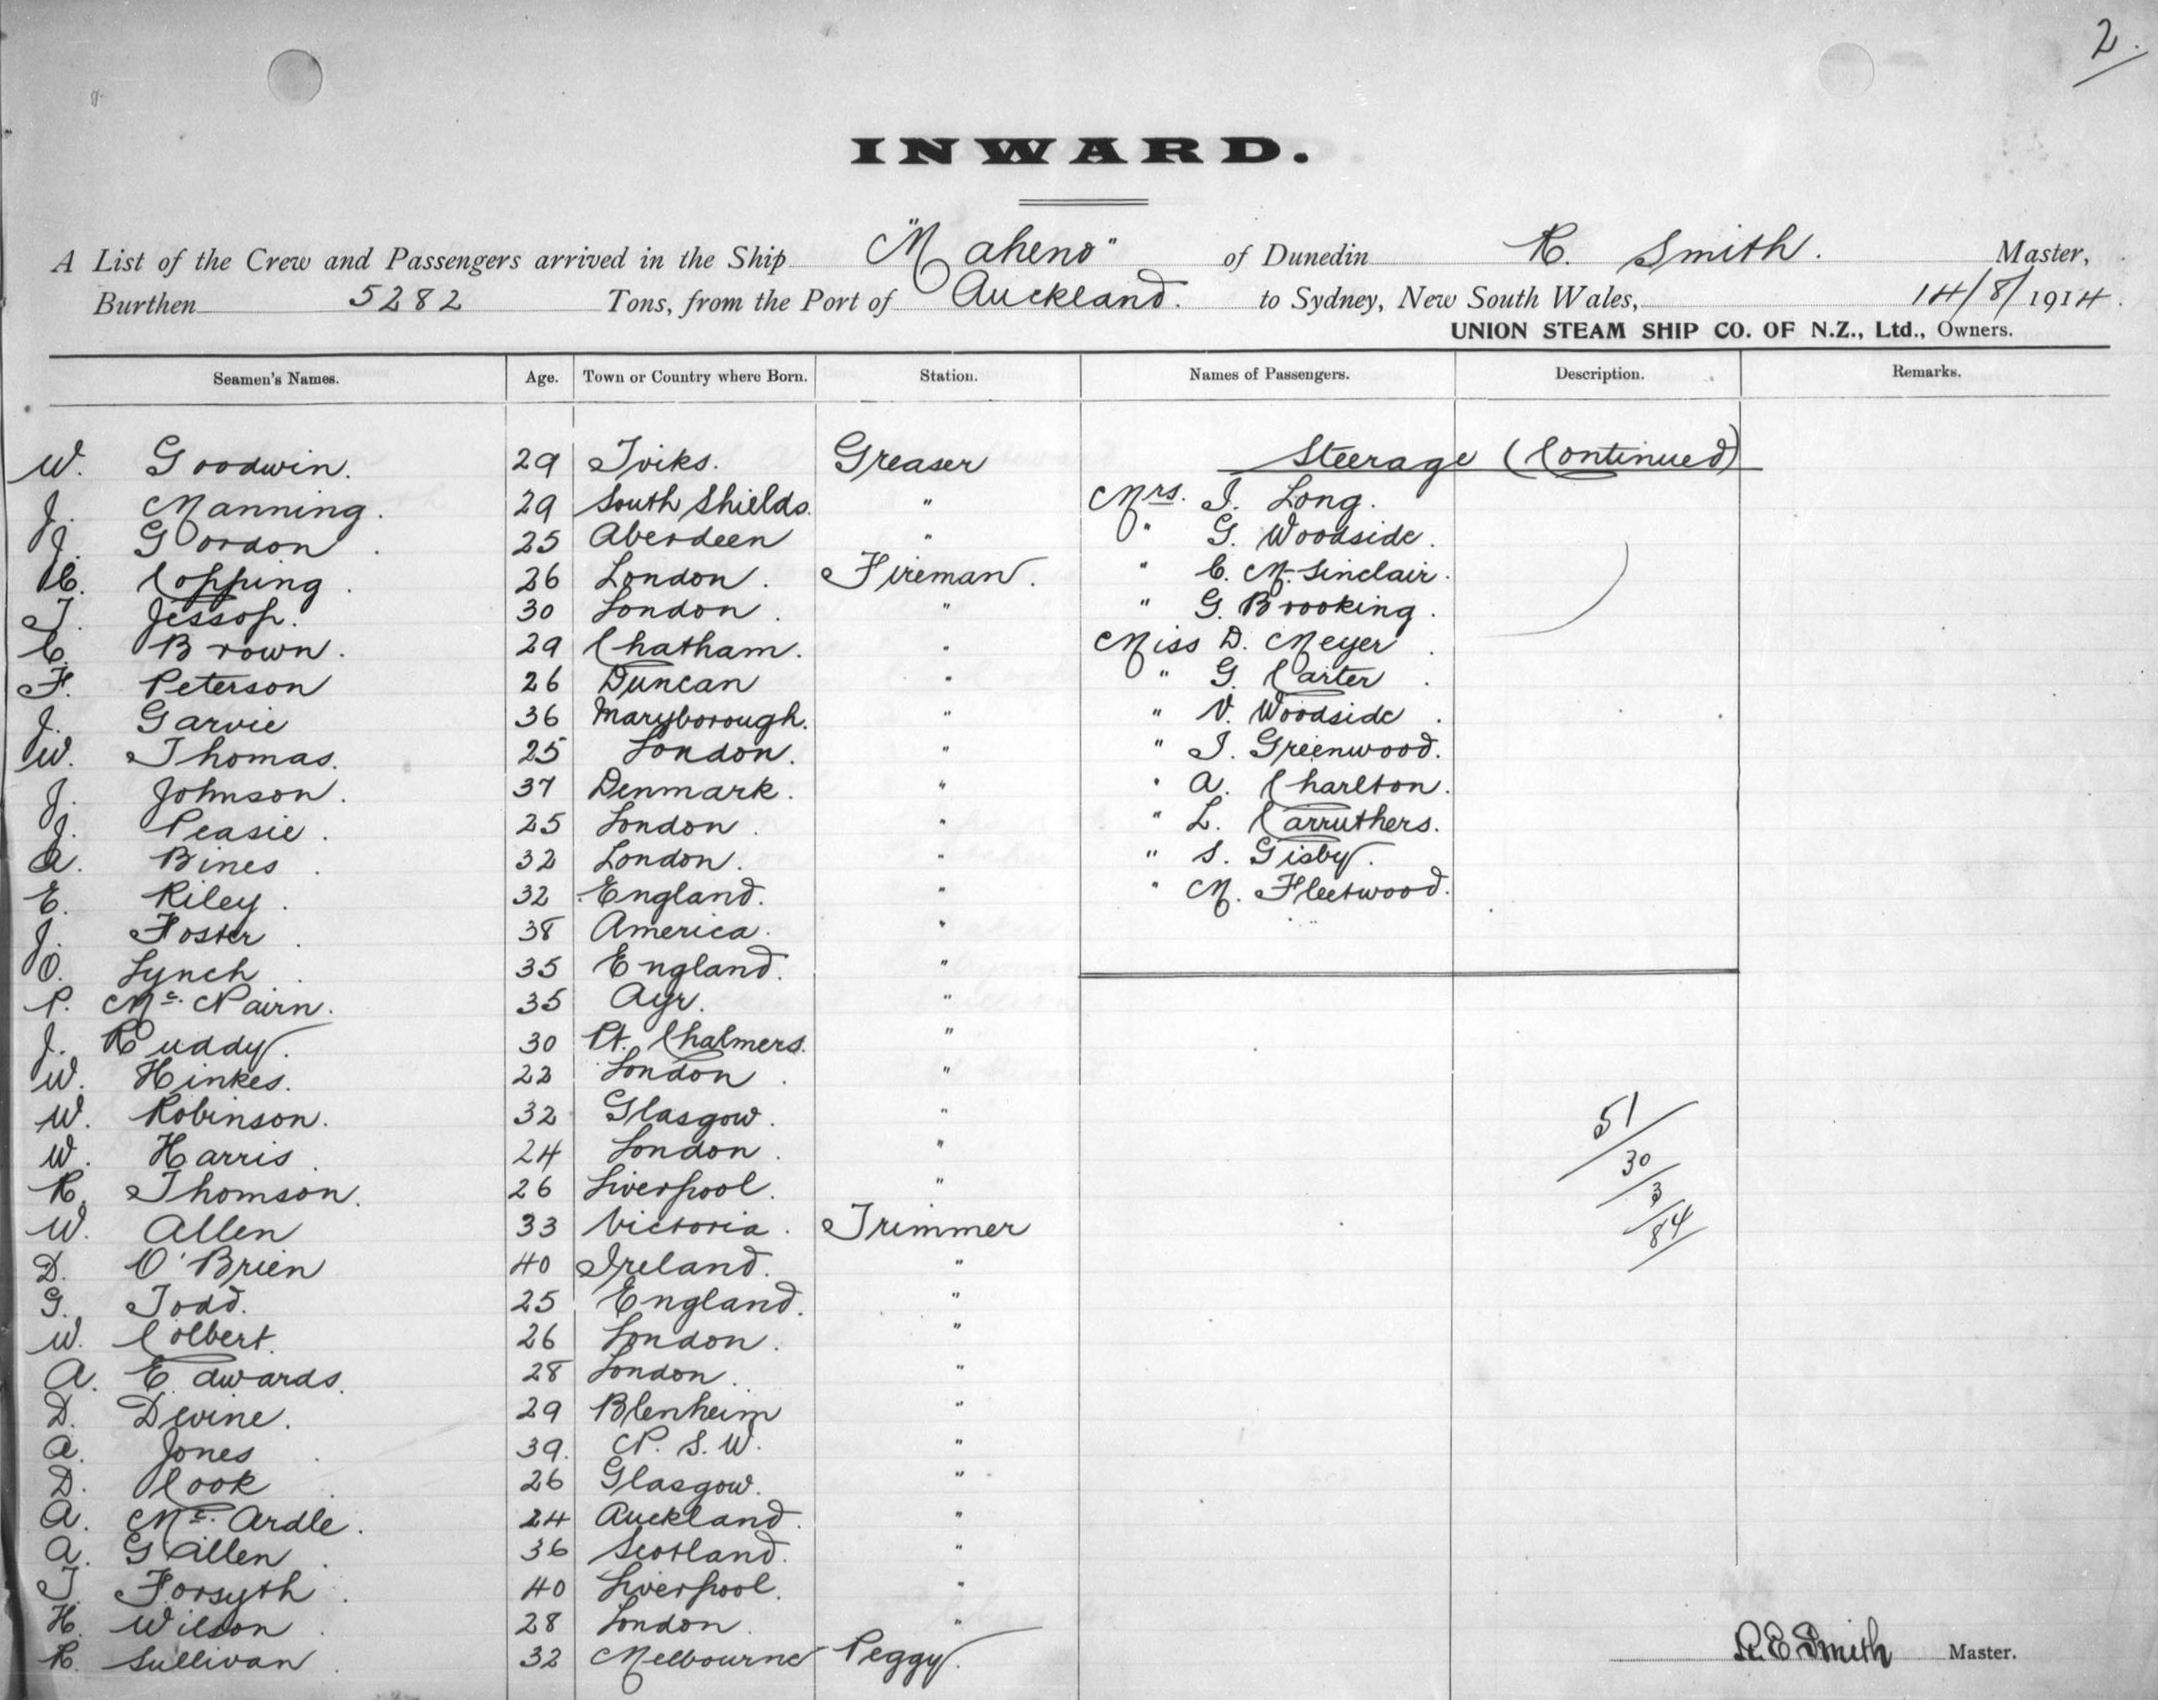 2.
INWARD.
A List of the Crew and Passengers arrived in the Ship "Maheno" of Dunedin R. Smith. Master,
Burthen 5282 Tons, from the Port of Auckland. to Sydney, New South Wales, 14/8/1914.
UNION STEAM SHIP CO. OF N.Z., Ltd., Owners.
Seamen's Names. Age. Town or Country where Born. Station. Names of Passengers. Description. Remarks.
W. Goodwin. 29 Greaser Steerage (Continued)
J. Manning. 29 South Shields. " Mrs. I. Long.
J. Gordon. 25 Aberdeen " " G. Woodside.
C. Copping. 26 London. Fireman. " C. M. Sinclair.
T. Jessop. 30 London. " " G. Brooking.
C. Brown. 29 Chatham. " Miss D. Meyer.
F. Peterson 26 Duncan " " G. Carter.
J. Garvie 36 Maryborough. " " V. Woodside.
W. Thomas. 25 London. " " I. Greenwood.
J. Johnson. 37 Denmark. " " A. Charlton.
J. Peasie. 25 London. " " L. Carruthers.
A. Bines. 32 London. " " S. Gisby.
E. Riley. 32 England. " " M. Fleetwood.
J. Foster. 38 America. "
O. Lynch. 35 England. "
P. McNairn. 35 Ayr. "
J. Ruddy. 30 Pt. Chalmers. "
W. Hinkes. 22 London. "
W. Robinson. 32 Glasgow. " 51
W. Harris. 24 London. " 30
R. Thomson. 26 Liverpool. " 3
W. Allen 33 Victoria. Trimmer 84
D. O'Brien 40 Ireland. "
G. Todd. 25 England. "
W. Colbert. 26 London. "
A. Edwards. 28 London. "
D. Devine. 29 Blenheim "
A. Jones. 39. N. S. W. "
D. Cook. 26 Glasgow. "
A. McArdle. 24 Auckland. "
A. Gallen. 36 Scotland. "
T. Forsyth. 40 Liverpool. "
H. Wilson. 28 London. "
R. Sullivan. 32 Melbourne Peggy.
R. E. Smith Master.